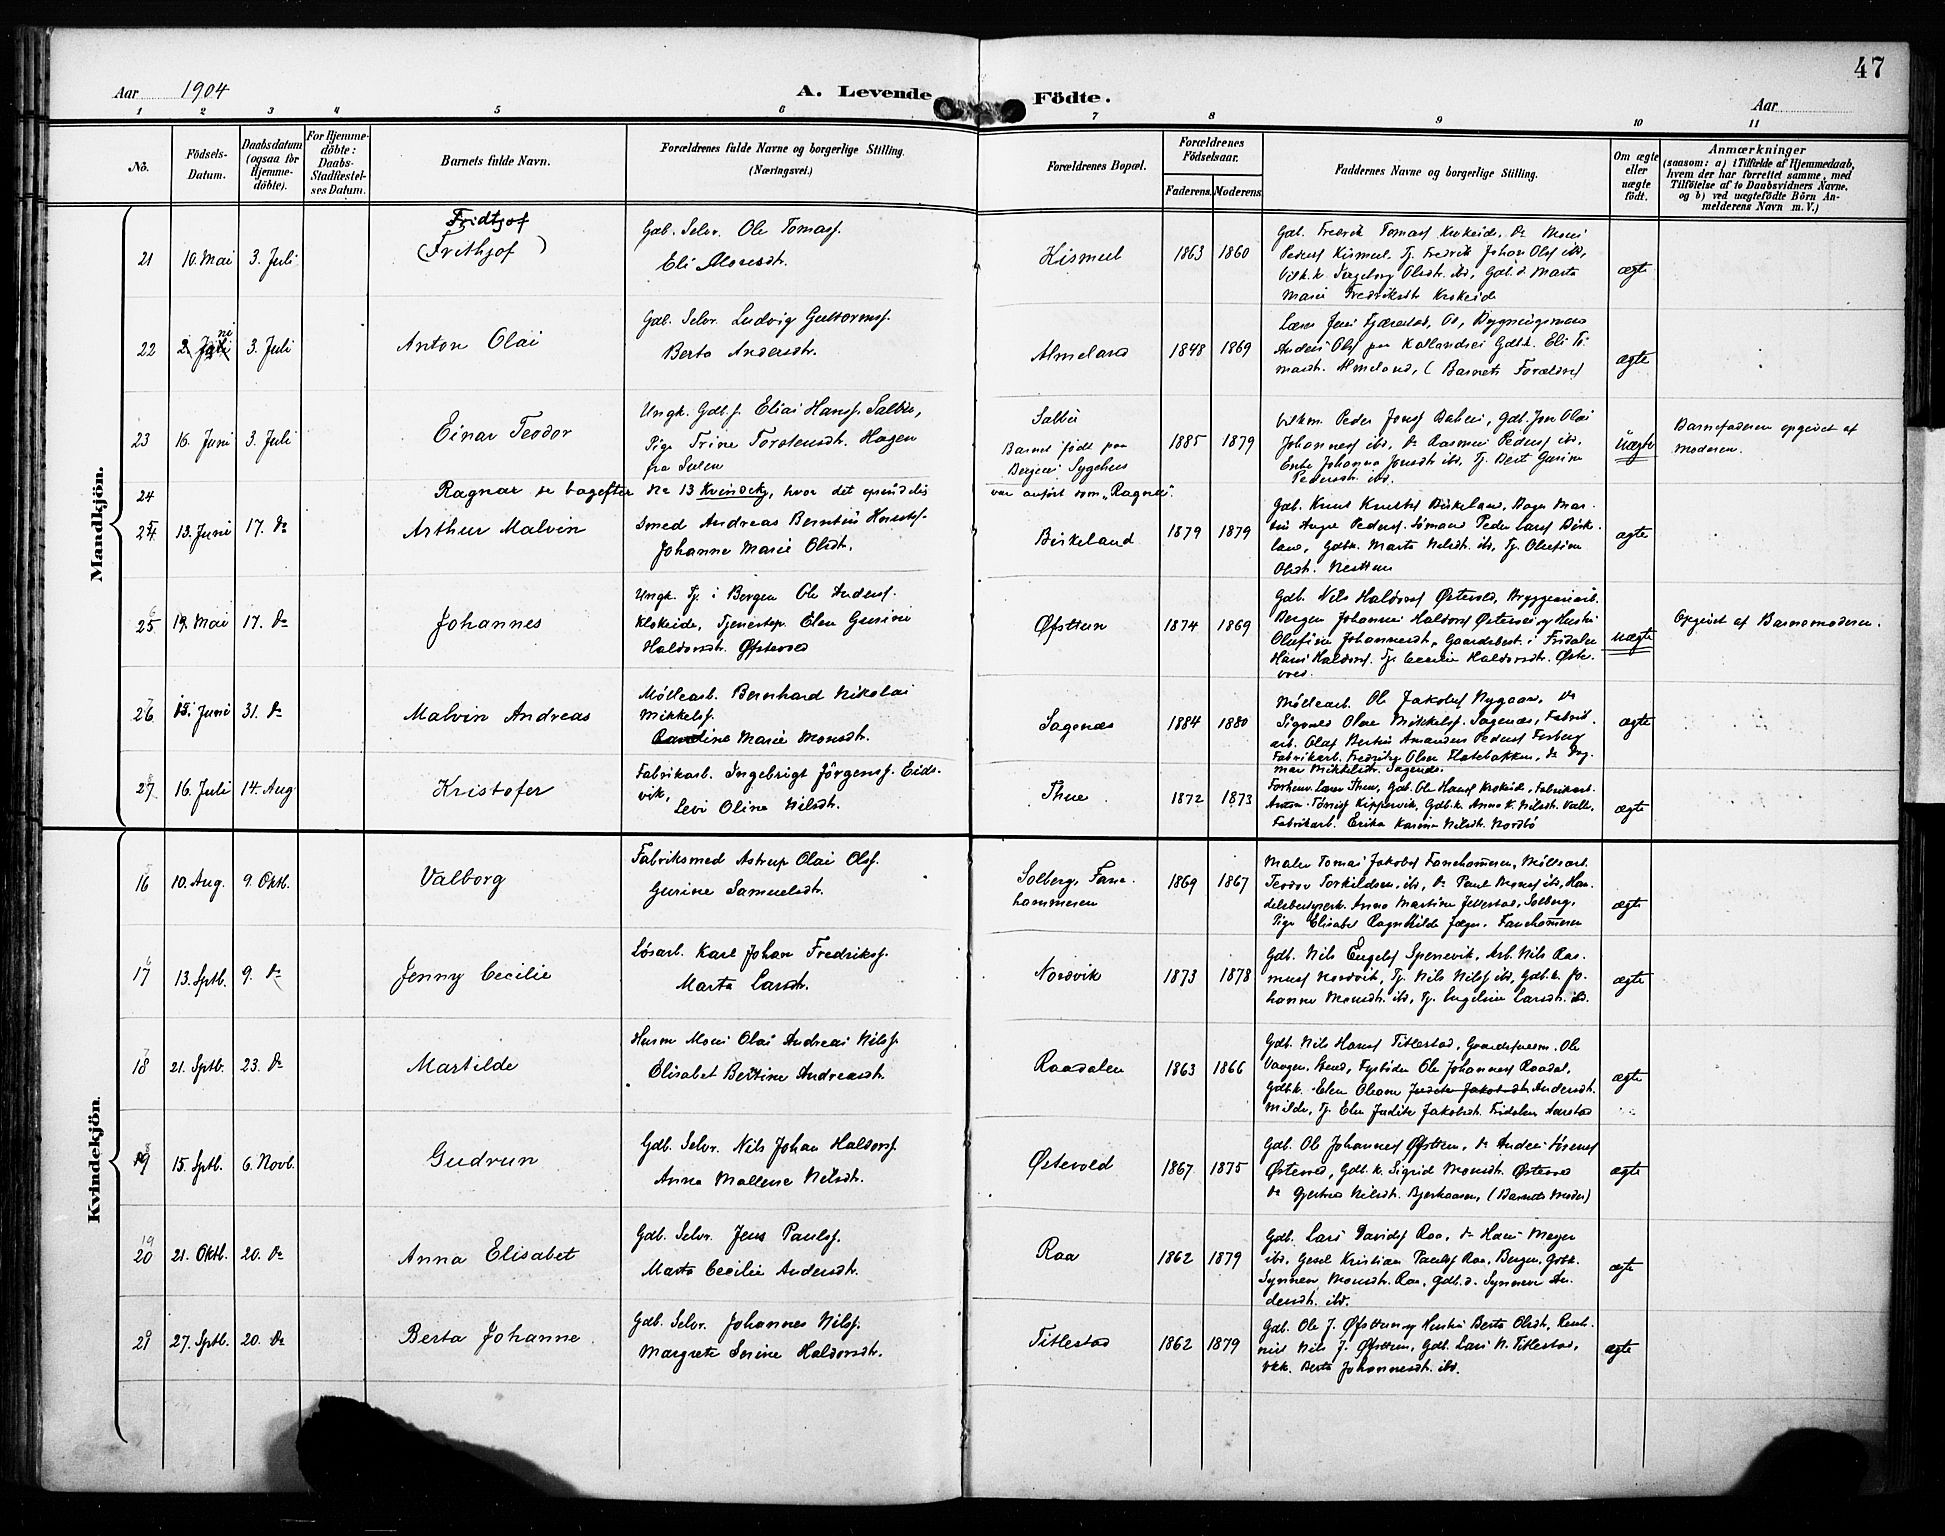 47
Aar 1904
A. Levende Födte.
Aar
1 2 3 4 5 6 7 8 9 10 11
No.
Födsels-Datum.
Daabsdatum (ogsaa for Hjemme-döbte).
For Hjemme-döbte: Daabs-Stadfæstel-ses Datum.
Barnets fulde Navn.
Forældrenes fulde Navne og borgerlige Stilling.
(Næringsvei.)
Forældrenes Bopæl.
Forældrenes Födselsaar.
Faderens. Moderens.
Faddernes Navne og borgerlige Stilling.
Om ægte eller uægte födt.
Anmærkninger
(saasom: a) i Tilfælde af Hjemmedaab, hvem der har forrettet samme, med Tilföielse af to Daabsvidners Navne, og b) ved uægtefödte Börn An-melderens Navn m. V.)
Mandkjön.
Fridtjof
21 10. Mai 3. Juli (Frithjof)
Gdb. Selv. Ole Tomasf.
Eli Monsdtr.
Kismul 1863 1860
Gdb. Fredrik Tomasf Krokeide, Do Mons
Pedersf Kismul. Tj. Fredrik Johan Olsf ibd,
Virk. k. Ingeborg Olsdtr. ibd, Gdb. d. Marta
Marie Fredriksdtr Krokeide
ægte
22 2. Juni 3. Juli Anton Olai
Gdb. Selv. Ludvig Guttormsf.
Berta Andersdtr.
Almeland 1848 1869
Anders Olsf paa Kallandsei Gdbk. Eli To-
masdtr. Almeland, (Barnets Forældre)
ægte
23 16. Juni 3. Juli Einar Teodor
Ungk. Gdb. s. Elias Hansf. Salbu,
Pige Trine Torstensdtr. Hagen
fra Sulen
Salbu
Barnet födt paa
Bergens Sygehus
1885 1879
Johannesf ibd, Do Rasmus Pedersf ibd,
Enke Johanna Jonsdtr ibd, Tj. Berit Gurine
Pedersdtr. ibd.
uægte
Barnefaderen opgivet af
Moderen.
24 Ragnar se bagefter No 13 Kvindekj, hvor det oprindelig
var anført som "Ragna".
25 13. Juni 17. Do Arthur Malvin
Smed Andreas Berntin
Johanne Marie Olsdtr.
Birkeland 1879 1879
Gdb. Knut Knutsf Birkeland, Bager Mar-
tin Aage Pedersf. Sömand Peder Larsf Birke-
land, Gdbk. Marta Nilsdtr. ib, Tj. Olufine
Olsdtr. Nesttun
ægte
25 19. Mai 17. Do Johannes
Ungk. Tj. i Bergen Ole Andersf.
Krokeide, Tjenestep. Elen Gurine
Haldorsdtr. Østevold
Øfsttun 1874 1869
Gdb. Nils Haldorsf Østevold, Bryggeriarb.
Bergen Johannes Haldorsf Østevold og Hustru
Olufine Johannesdtr, Gaardsbest. i Fridalen
Hans Haldorsf. Tj. Cecilie Haldorsdtr. Øste-
vold.
uægte
Opgivet af Barnemoderen.
26 Juni 31. Do Malvin Andreas
Möllearb. Bernhard Nikolai
Mikkelsf.
Karoline Marie Monsdtr.
Sagenæs 1884 1880
Möllearb. Ole Jakobsf Nygaard, Do
Sigvard Olai Mikkelsf. Sagenæs, Fabrik-
arb. Olaf Bertin Amandus Pedersf Forberg
Fabrikarb. Fredrikke Olsen Flatebakken, Do Dag-
mar Mikkelsdtr. Sagenæs.
ægte
27 16. Juli 14. Aug Kristofer
Fabrikarb. Ingebrigt Jörgensf. Eids-
vik,
Sevi Oline Nilsdtr.
Thue 1872 1873
Forhenv. Lærer Thue, Gdb. Ole Hansf Krokeide, Fabrikarb.
Kippervik, Gdb. k. Anna N. Nilsdtr. Valle,
Fabrikarb. Erika Karine Nilsdtr. Nordbö
ægte
Kvindekjön.
16 10. Aug. 9. Oktb. Valborg
Fabriksmed Astrup Olai Olsf.
Gurine Samuelsdtr.
Solberg, Fane-
hammeren
1869 1867
Maler Tomas Jakobsf Fanehammeren, Möllearb.
Teodor Torkildsen ibd, Do Paul Monsf ibd, Han-
delsbestyrer. Anna Martine Jellestad, Solberg,
Pige Elisabet Ragnhilde Jæger. Fanehammeren
ægte
17 13. Sptb. 9. Do Jenny Cecilie
Løsarb. Karl Johan Fredriksf.
Marta Larsdtr.
Nordvik 1873 1878
Gdb. Nils Engelsf Spenevik, Arb. Nils Ras-
musf Nordvik, Tj. Nils Nilsf ibd, Gdb. k. Jo-
hanne Monsdtr. ibd, Tj. Engeline Larsdtr. ibd.
ægte
18 21. Sptb. 23. Do Martilde
Husm Mons Olai Andreas Nilsf.
Elisabet Bertine Andreasdtr.
Raadalen 1863 1866
Gdb. Nils Hansf Titlestad, Gaardsfuldm. Ole
Vangen, Stend, Fyrböder Ole Johannesf Raadal,
Gdbk. Elen Oleane Judite Jakobsdtr. Andersdtr.
Milde, Tj. Elen Judite Jakobsdtr. Fridalen Aarstad
ægte
19 15. Sptb. 6. Novb. Gudrun
Gdb. Selv. Nils Johan Haldorsf.
Anna Mallene Nilsdtr.
Østevold 1867 1875
Gdb. Ole Johannesf Øfsttun, Do Anders
Østevold, Gdb. k. Sigrid Monsdtr. Østevold
Do Gjertrud Nilsdtr. Bjerkaasen, (Barnets Moder)
ægte
20 21. Oktb. 20. Do Anna Elisabet
Gdb. Selv. Jens Paulsf.
Marta Cecilie Andersdtr.
Raa 1862 1879
Gdb. Lars Davidsf Raa, Do Hans Meyer
ibd, Gesel Kristian Paulsf Raa, Bergen, Gdbk.
Synneva Monsdtr. Raa, Gdb. d. Synneva An-
dersdtr. ibd.
ægte
29 27. Sptb. 20. Do Berta Johanne
Gdb. Selv. Johannes Nilsf.
Margrete Serine Haldorsdtr.
Titlestad 1862 1879
Gdb. Ole J. Øfsttun og Hustru Berta Olsdtr,
Nils J. Øfsttun, Gdb. Lars N. Titlestad,
Berta Johannesdtr. ibd.
ægte